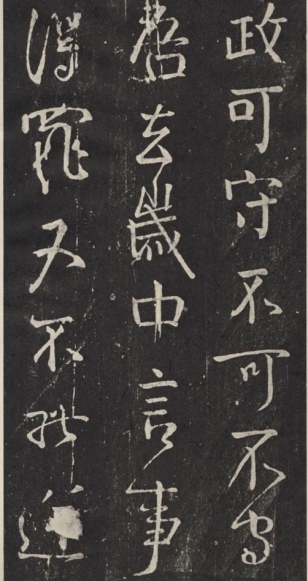 政可守不可不守
吾去歲中言事
得罪又不能逆